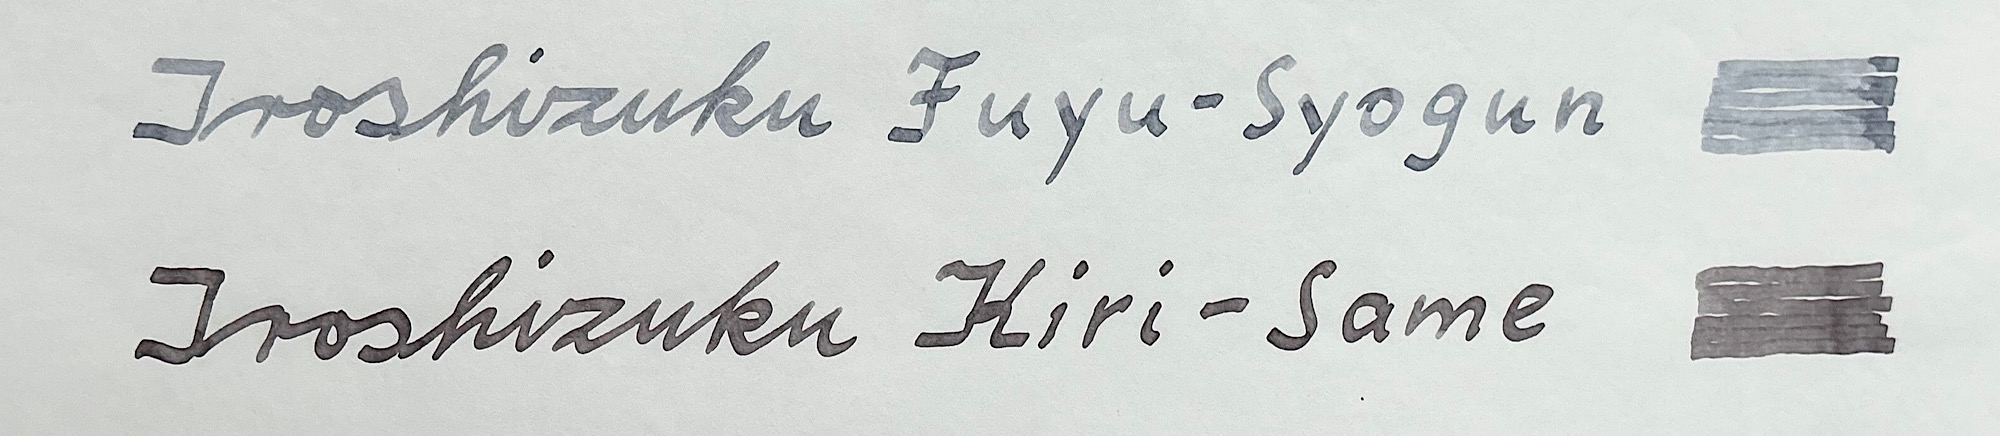 Iroshizuku Fuyu-Syogun
Iroshizuku Kiri-Same